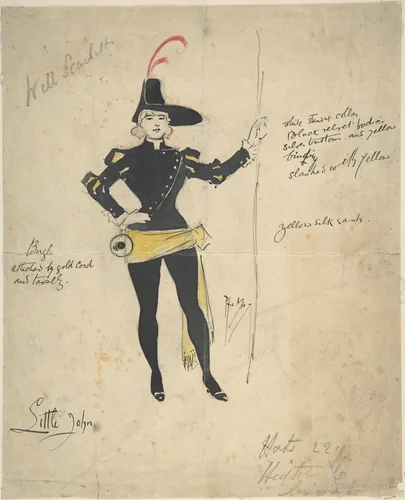 Will Scarlett
Black velvet bodice
silver buttons and yellow
binding
slashed with yellow
yellow silk sash.
Bugle
attached by gold cord
and tassels.
Little John
Hats 22